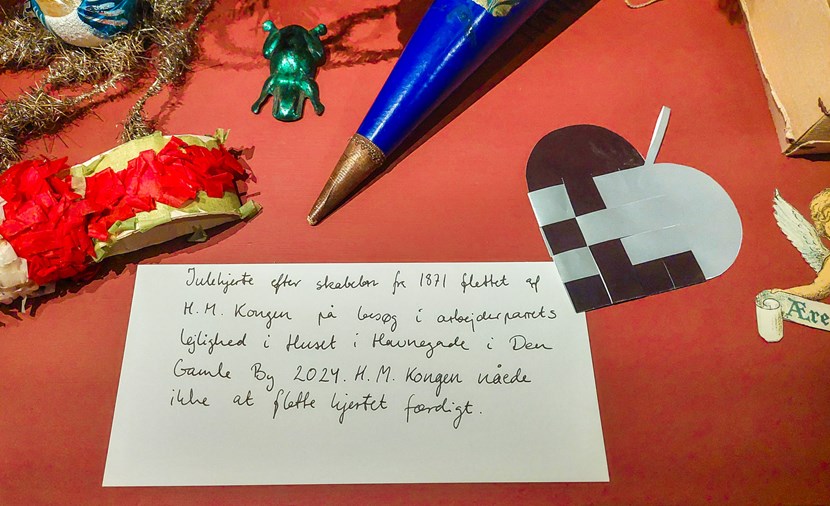 Julehjerte efter skabelon fra 1871 flettet af
H. M. Kongen på besøg i arbejderparrets
lejlighed i Huset i Havnegade i Den
Gamle By 2024. H. M. Kongen nåede
ikke at flette hjertet færdigt.
Ære